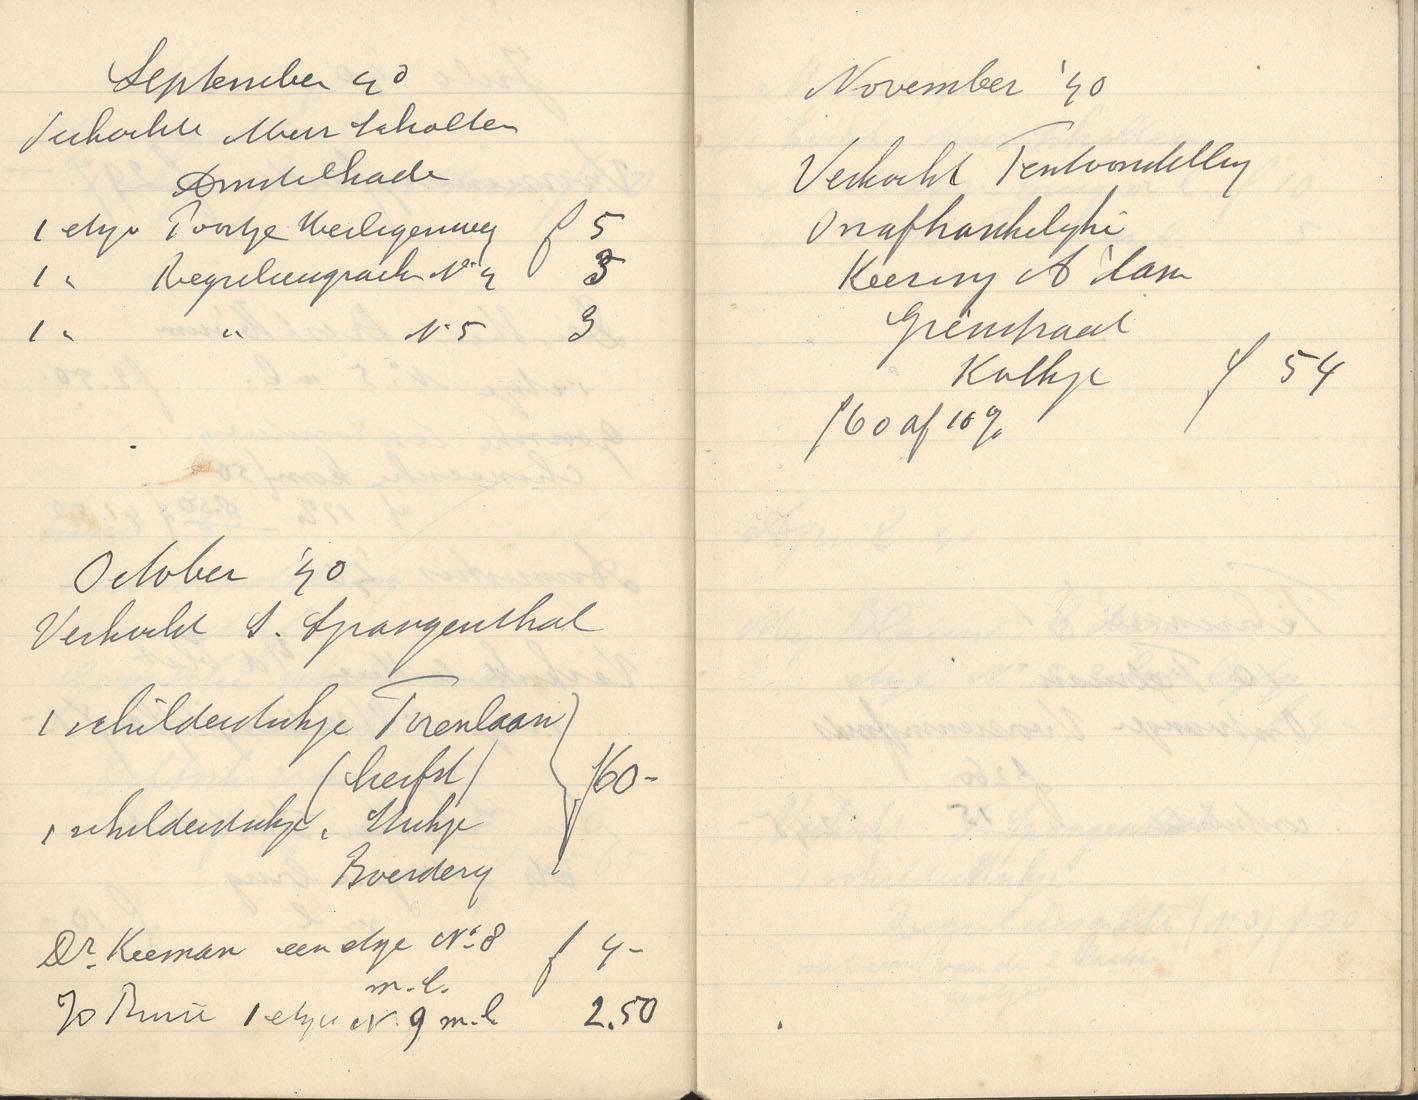 September 40
Verkochte Mevr Scholten
Amstelkade
1 etsje Poortje Weesligenweg f 5
1 " Reguliersgracht No 4 3
1 " " No 5 3
October '40
Verkocht S. Spangenthal
1 schilderstukje Torenlaan
(herfst) f 60-
1 schilderstukje, Stukje
Boerdery
Dr. Keeman een etsje No. 8 f 4-
m.l.
Jo 1 etsje N. 9 m.l. 2.50
November '40
Verkocht Tentoonstelling
Onafhankelyke
Keering A'dam
straat
Kolkje f 54
f 60 af 10%